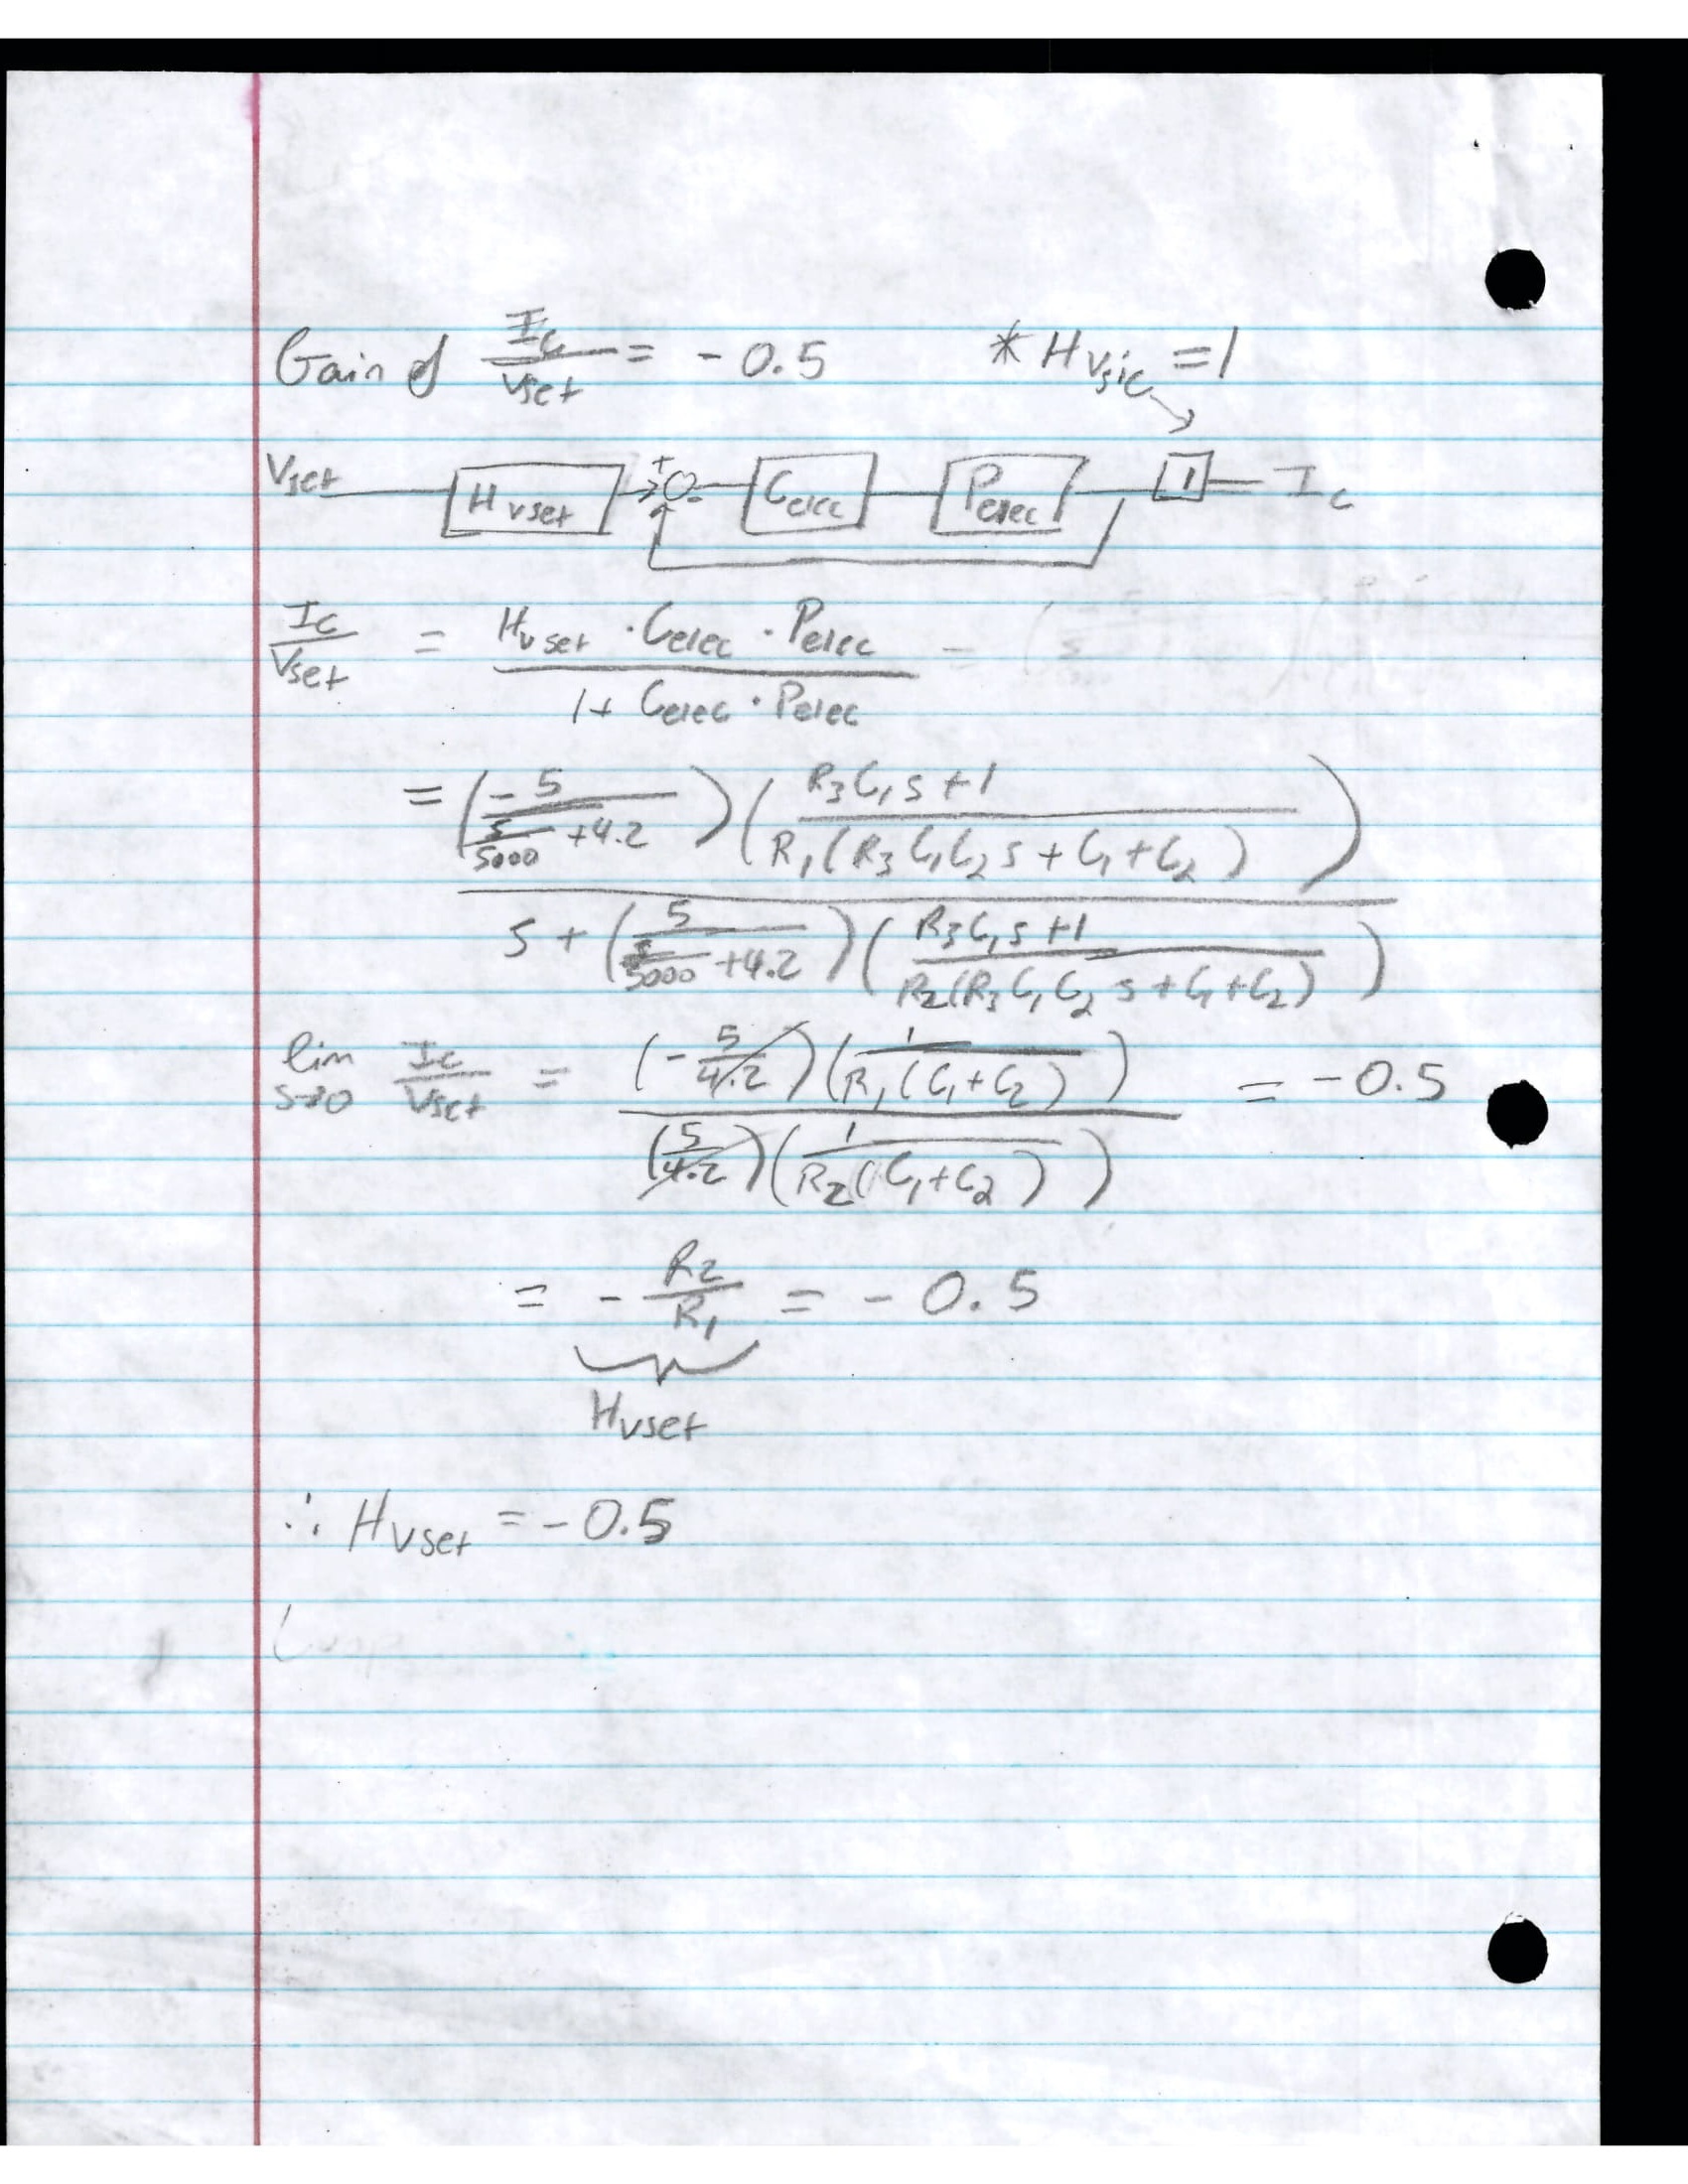 Gain of Ic/Vset = -0.5 * H_Vsic = 1
Vset H_vset + - Celec Pelec 1 Ic
Ic/Vset = (H_vset · Celec · Pelec)/(1 + Celec · Pelec) =
= ((-5/(s/5000 + 4.2)) ((R3C1s+1)/(R1(R3C1C2s + C1 + C2))))/(s + (5/(s/5000 + 4.2)) ((R3C1s+1)/(R2(R3C1C2s + C1 + C2))))
lim s→0 Ic/Vset = ((-5/4.2)(1/(R1(C1+C2))))/((5/4.2)(1/(R2(C1+C2)))) = -0.5
= -R2/R1 = -0.5
H_vset
∴ H_vset = -0.5
Loop